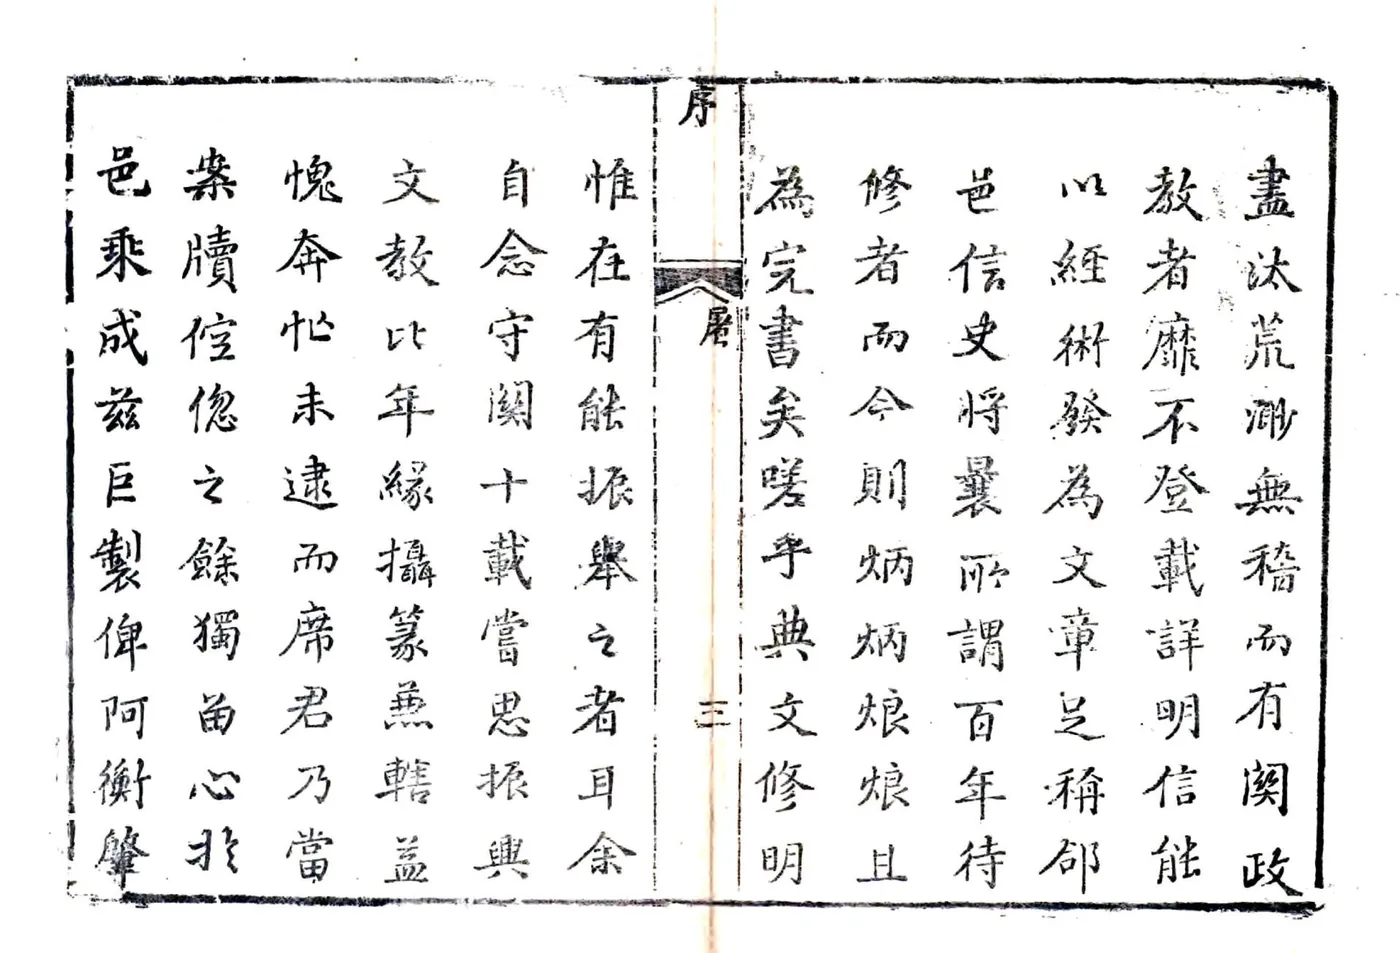 盡汰荒渺無稽而有関政
教者靡不登載詳明信能
以經術發為文章足稱郃
邑信史將曩所謂百年待
修者而今則炳炳烺烺且
為完書矣嗟乎典文修明
序
三
惟在有能振舉之者耳余
自念守関十載嘗思振興
文教比年緣攝篆兼轄益
愧奔忙未逮而席君乃當
案牘倥偬之餘獨留心於
邑乘成茲巨製俾阿衡肇